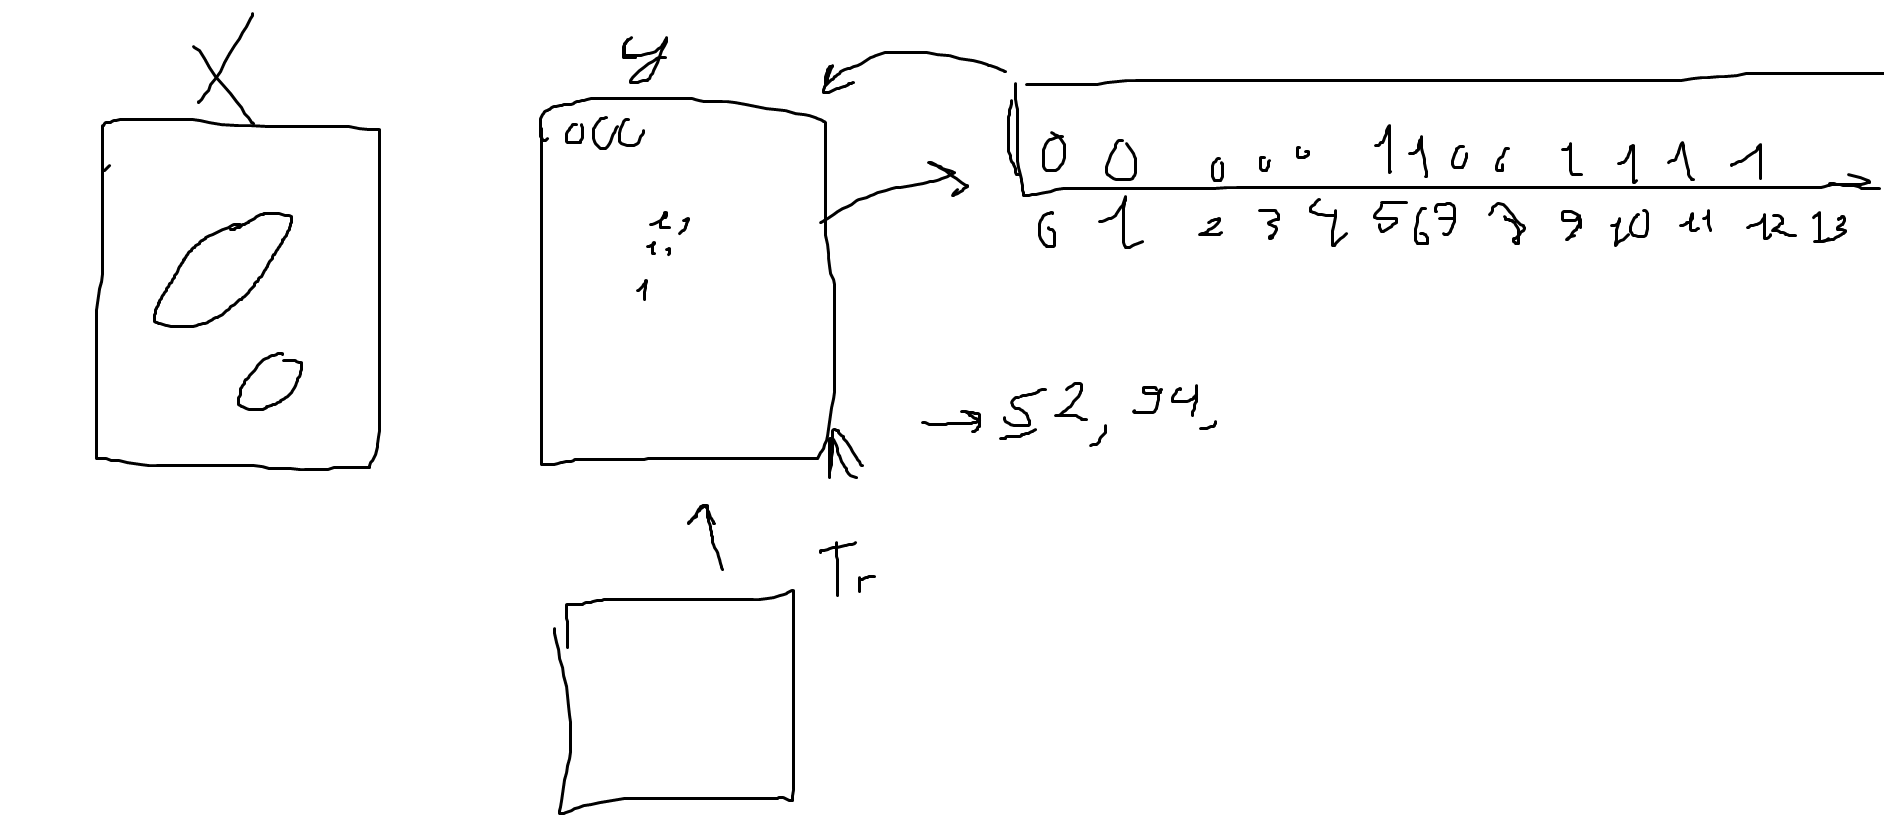 X
y
000
1,
1,
1
0 0 0 0 0 1 1 0 0 1 1 1 1
0 1 2 3 4 5 6 7 8 9 10 11 12 13
→ 52, 94,
Tr